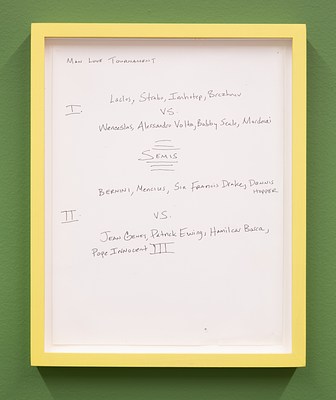 Man Love Tournament
I. Laslos, Strabo, Imhotep,
VS.
Wenceslas, Alessandro Volta, Bobby Seale, Mordecai
SEMIS
BERNINI, MENCIUS, SIR FRANCIS DRAKE, DENNIS
HOPPER
II. V.S.
JEAN GENET, PATRICK EWING, Hamilcar Barca,
Pope INNOCENT III